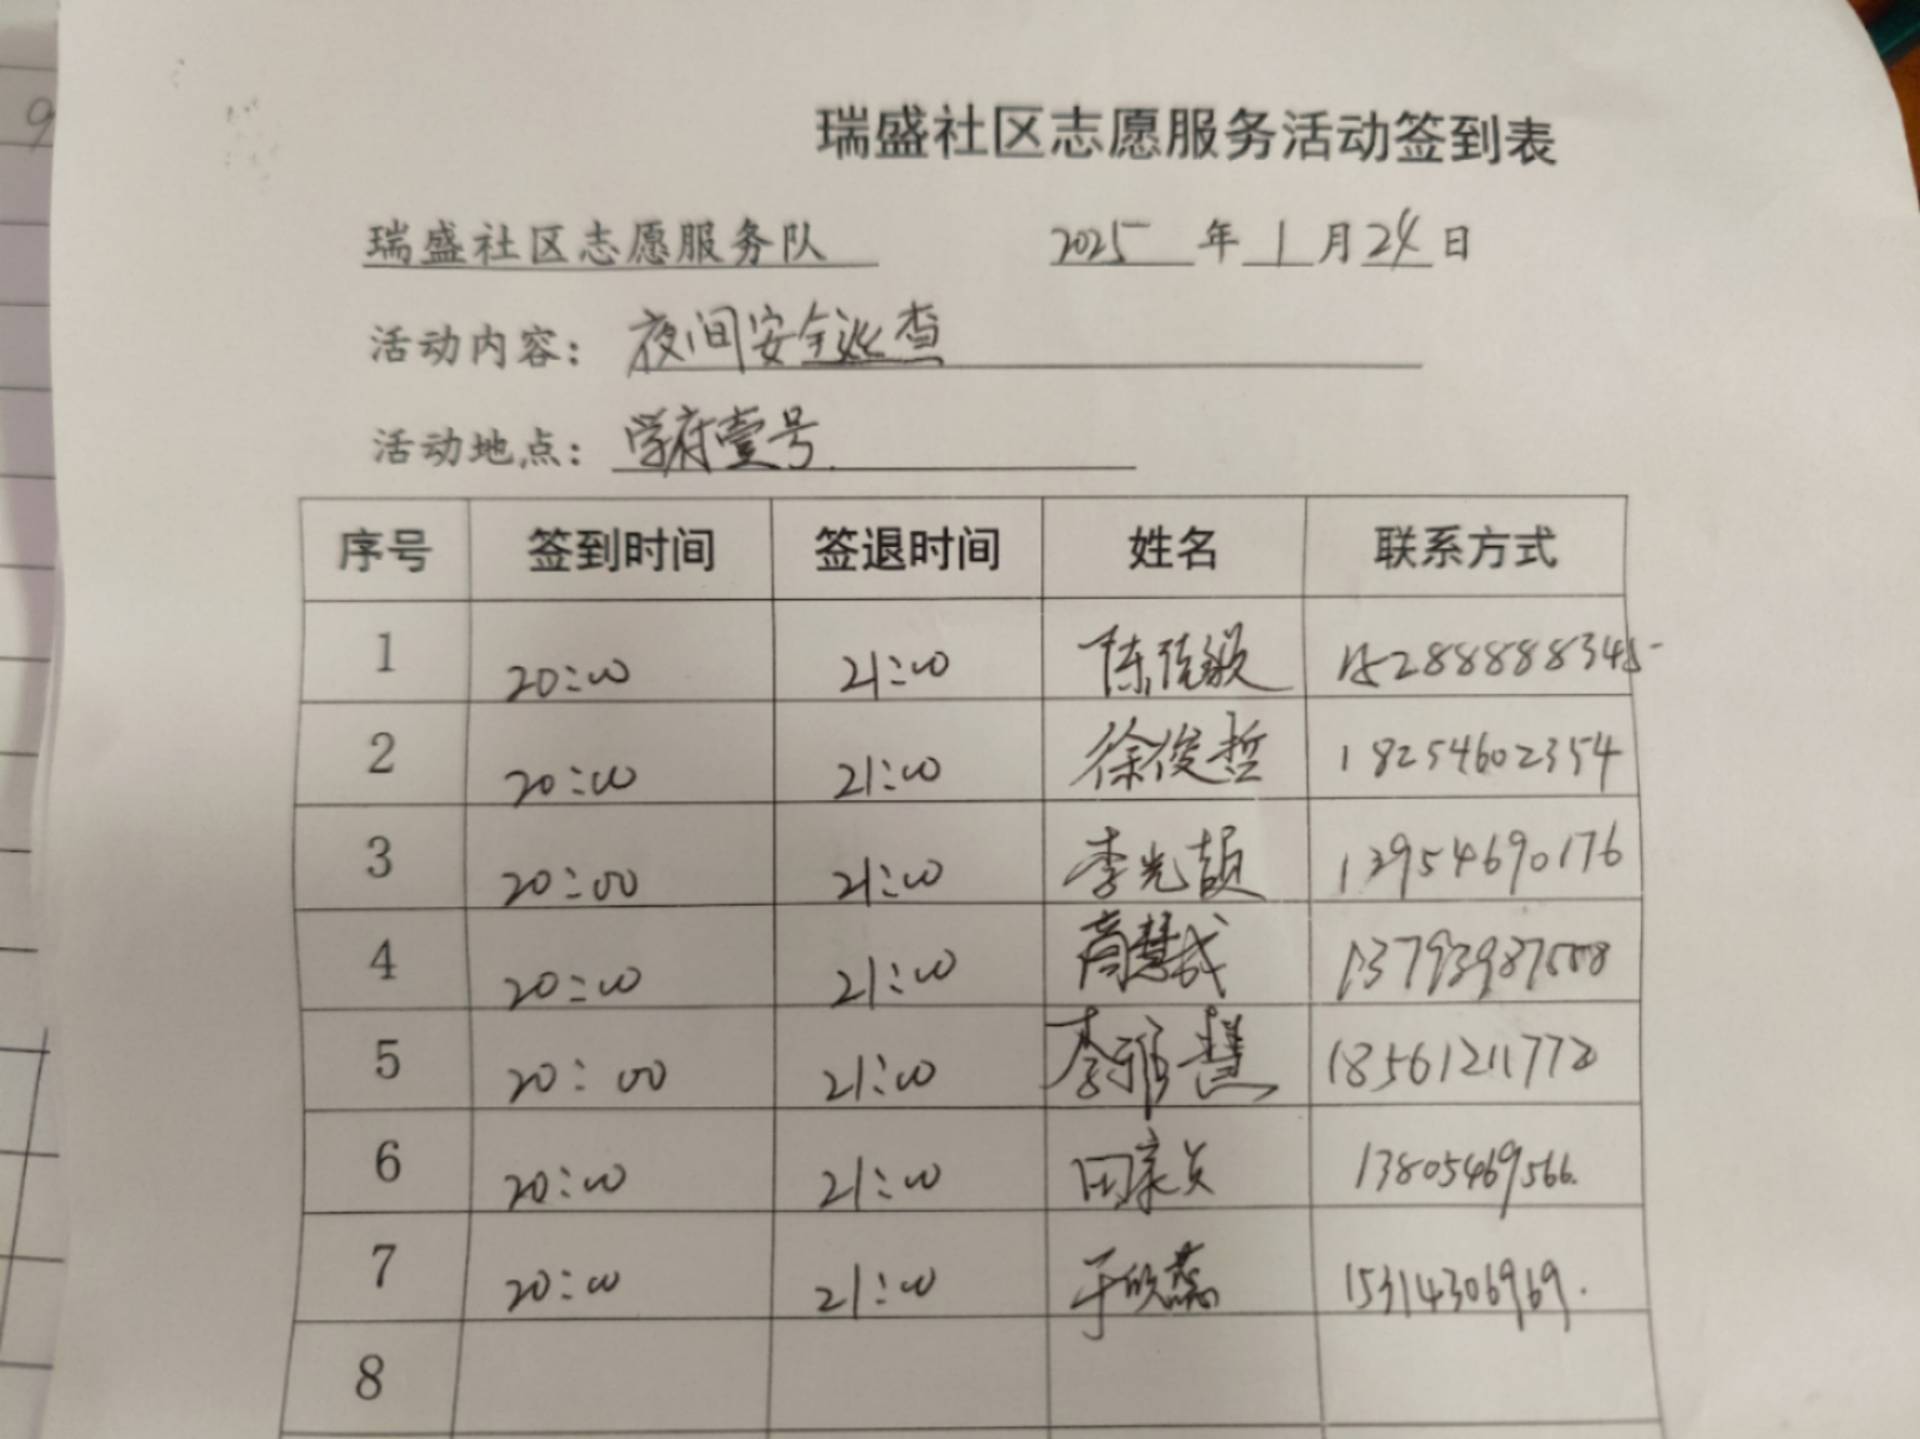 瑞盛社区志愿服务活动签到表
瑞盛社区志愿服务队 2025 年 1 月 24 日
活动内容: 夜间安全巡查
活动地点: 学府壹号
序号 签到时间 签退时间 姓名 联系方式
1 20:00 21:00 陈佳毅 15288888345
2 20:00 21:00 徐俊哲 18254602354
3 20:00 21:00 李光颉 13954690176
4 20:00 21:00 高慧成
5 20:00 21:00 李雅慧 18561211772
6 20:00 21:00 田家兴 13805469566.
7 20:00 21:00 于欣蕊 15314306969.
8